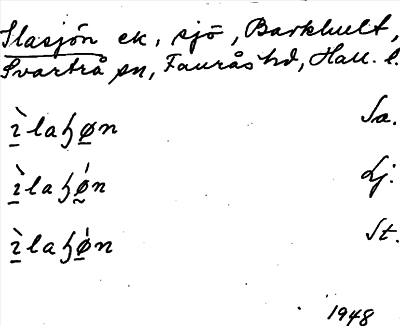 Ilasjön ek, sjö, Barkhult,
Svartrå sn, Faurås hd, Hall. l.
ì̱ laɧø̱n Sa.
ì̱ laɧǿ̰n Lj.
ì̱ laɧǿ̱n St.
1948